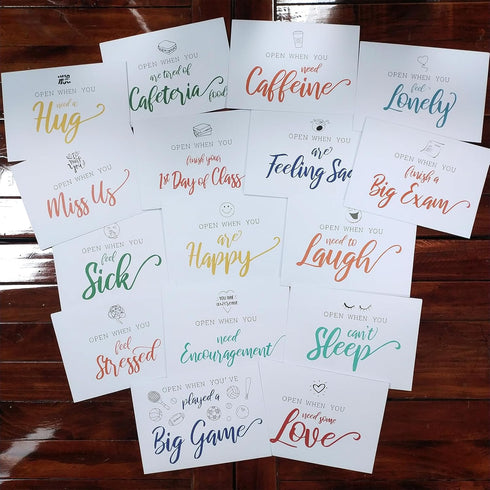 OPEN WHEN YOU
are tired of
Cafeteria food
OPEN WHEN YOU
need
Caffeine
OPEN WHEN YOU
feel
Lonely
OPEN WHEN YOU
need a
Hug
OPEN WHEN YOU
finish your
1st Day of Class
OPEN WHEN YOU
are
Feeling Sad
OPEN WHEN YOU
finish a
Big Exam
OPEN WHEN YOU
Miss Us
OPEN WHEN YOU
feel
Sick
OPEN WHEN YOU
are
Happy
OPEN WHEN YOU
need to
Laugh
OPEN WHEN YOU
feel
Stressed
YOU ARE
AWESOME
OPEN WHEN YOU
need
Encouragement
OPEN WHEN YOU
can't
Sleep
OPEN WHEN YOU'VE
played a
Big Game
OPEN WHEN YOU
need some
Love